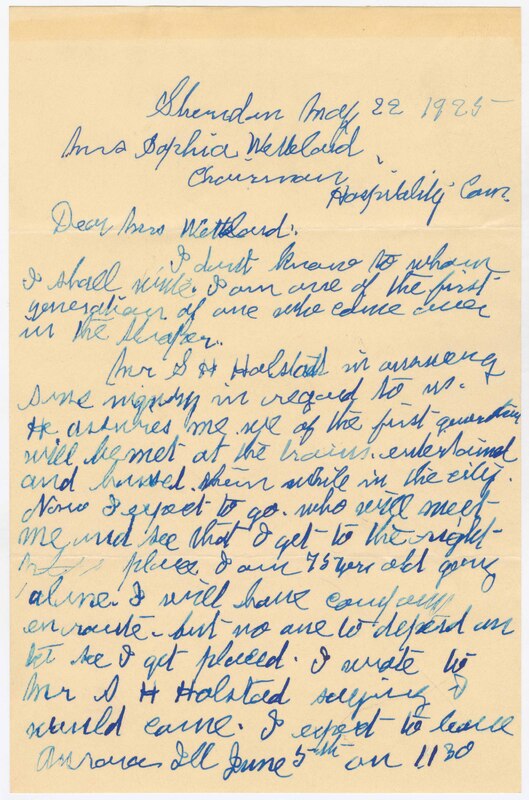 Sheridan May 22 1925
Mrs Sophia Wettland
Chairman,
Hospitality Com.
Dear Mrs Wettland.
I dont know to whom
I shall write. I am one of the first
generation of one who come over
in the
Mr S H Holstad in answering
some in regard to us.
He assures me we of the first generation
will be met at the trains. entertained
and housed them while in the city.
Now I expect to go. who will meet
me and see that I get to the right
place I am 75 yrs old going
alone. I will have company
en route. but no one to depend on
to see I get placed. I wrote to
Mr S H Holstad saying I
would come. I expect to leave
Aurora Ill June 5th on 1130